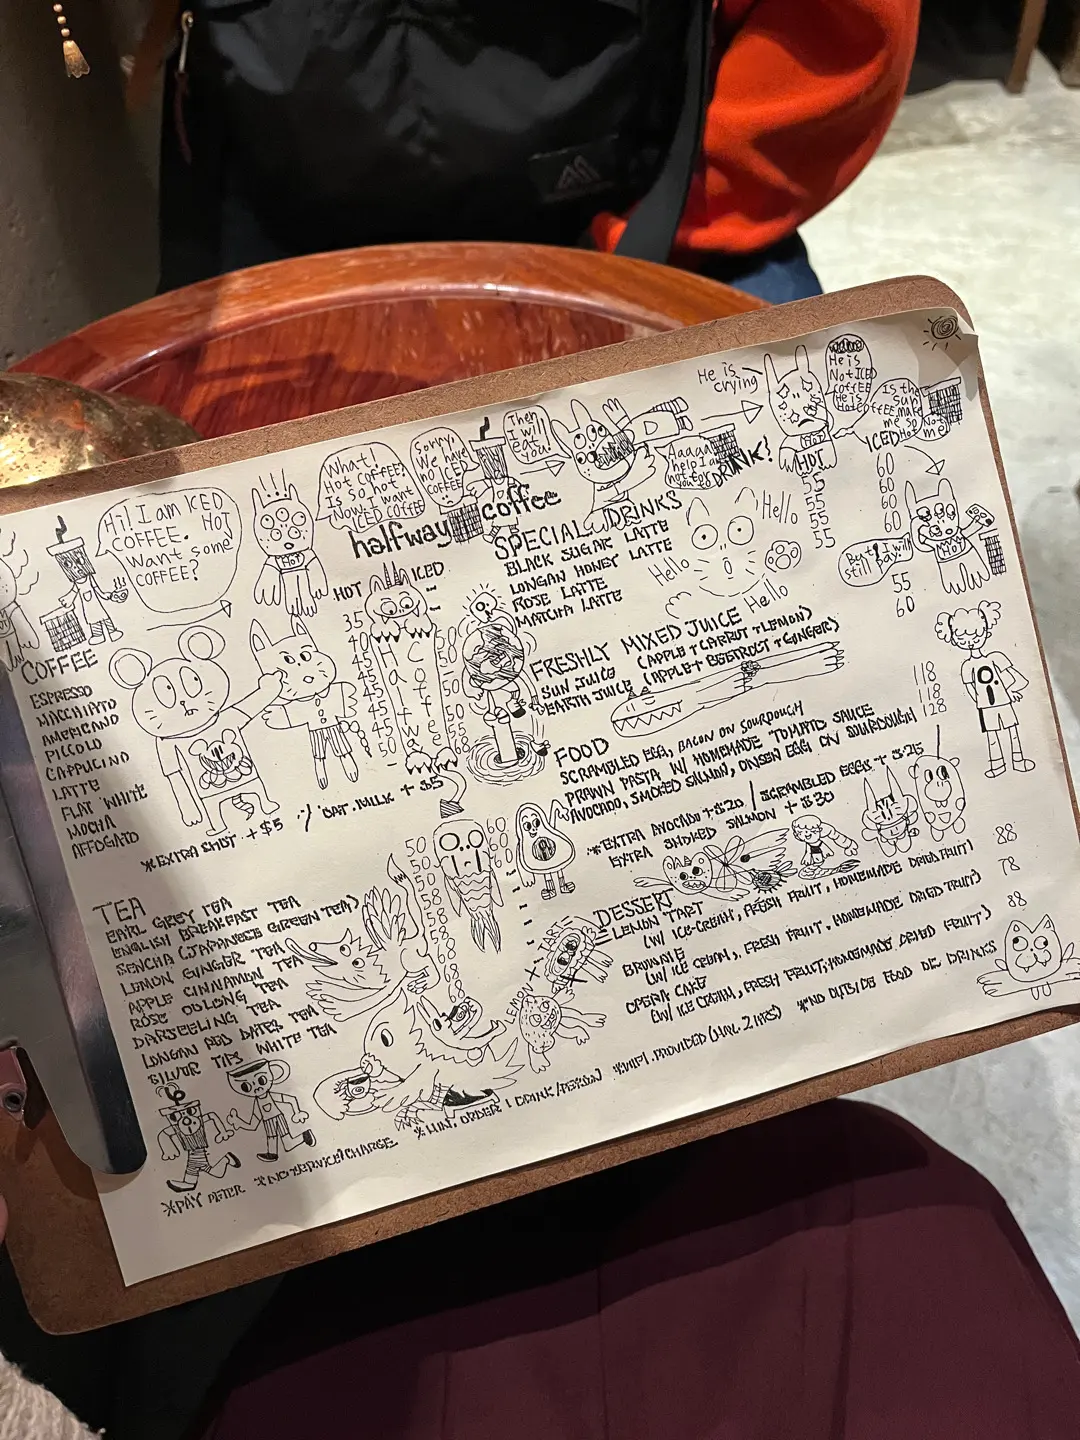 Hi! I am ICED
COFFEE. HOT
Want some
COFFEE?
HOT
What!
Hot COFFEE?
Is so hot
Now. I want
ICED COFFEE
Sorry,
We have
no ICED
COFFEE
Then
I will
EAT
you!
Aaaaa
help I am
not for
DRINK!
He is
crying
HOT
He is
Not ICED
COFFEE
He is
Hot COFFEE
Is the
sun
make
me so
Hot
Not
me!
But I will
still pay!
HOT
halfway coffee
COFFEE
HOT ICED
ESPRESSO 35 -
MACCHIATO 40 -
AMERICANO
PICCOLO
CAPPUCINO
LATTE
FLAT WHITE
MOCHA
AFFOGATO
*EXTRA SHOT +$5 / OAT MILK +$5
halfway
coffee
TEA
EARL GREY TEA
ENGLISH BREAKFAST TEA
SENCHA (JAPANESE GREEN TEA)
LEMON GINGER TEA
APPLE CINNAMON TEA
ROSE OOLONG TEA
DARJEELING TEA
LONGAN RED DATES TEA
SILVER TIPS WHITE TEA
SPECIAL DRINKS
HOT ICED
BLACK SUGAR LATTE 55 60
LONGAN HONEY LATTE 55 60
ROSE LATTE 55 60
MATCHA LATTE 55 60
Hello
Hello
Hello
FRESHLY MIXED JUICE
SUN JUICE (APPLE + CARROT + LEMON) 55
EARTH JUICE (APPLE + BEETROOT + GINGER) 60
FOOD
SCRAMBLED EGG, BACON ON SOURDOUGH 118
PRAWN PASTA W/ HOMEMADE TOMATO SAUCE 118
AVOCADO, SMOKED SALMON, ONSEN EGG ON SOURDOUGH 128
*EXTRA AVOCADO +$20 / SCRAMBLED EGGS +$25
EXTRA SMOKED SALMON +$30
DESSERT
LEMON TART 88
(W/ ICE-CREAM, FRESH FRUIT, HOMEMADE DRIED FRUIT)
BROWNIE 78
(W/ ICE CREAM, FRESH FRUIT, HOMEMADE DRIED FRUIT)
OPERA CAKE 88
(W/ ICE CREAM, FRESH FRUIT, HOMEMADE DRIED FRUIT)
LEMON + TART
*PAY AFTER *NO SERVICE CHARGE *MIN. ORDER 1 DRINK/PERSON *WIFI PROVIDED (MAX. 2 HRS) *NO OUTSIDE FOOD OR DRINKS